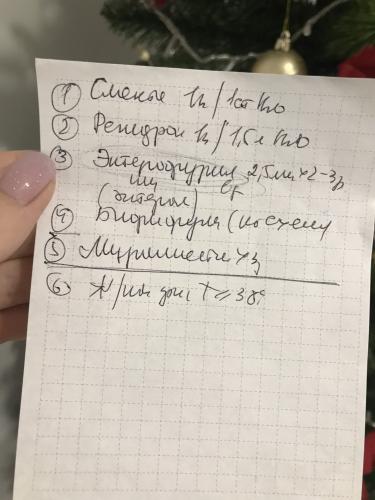 ① Смекта 1п/1ст H₂O
② Регидрон 1п/1,5л H₂O
③ Энтерофурил 2,5мл × 2-3р
или 5г
(энтерол)
④ Бифиформ (по схеме)
⑤ × 3
⑥ Ж/пон при T ≥ 38,